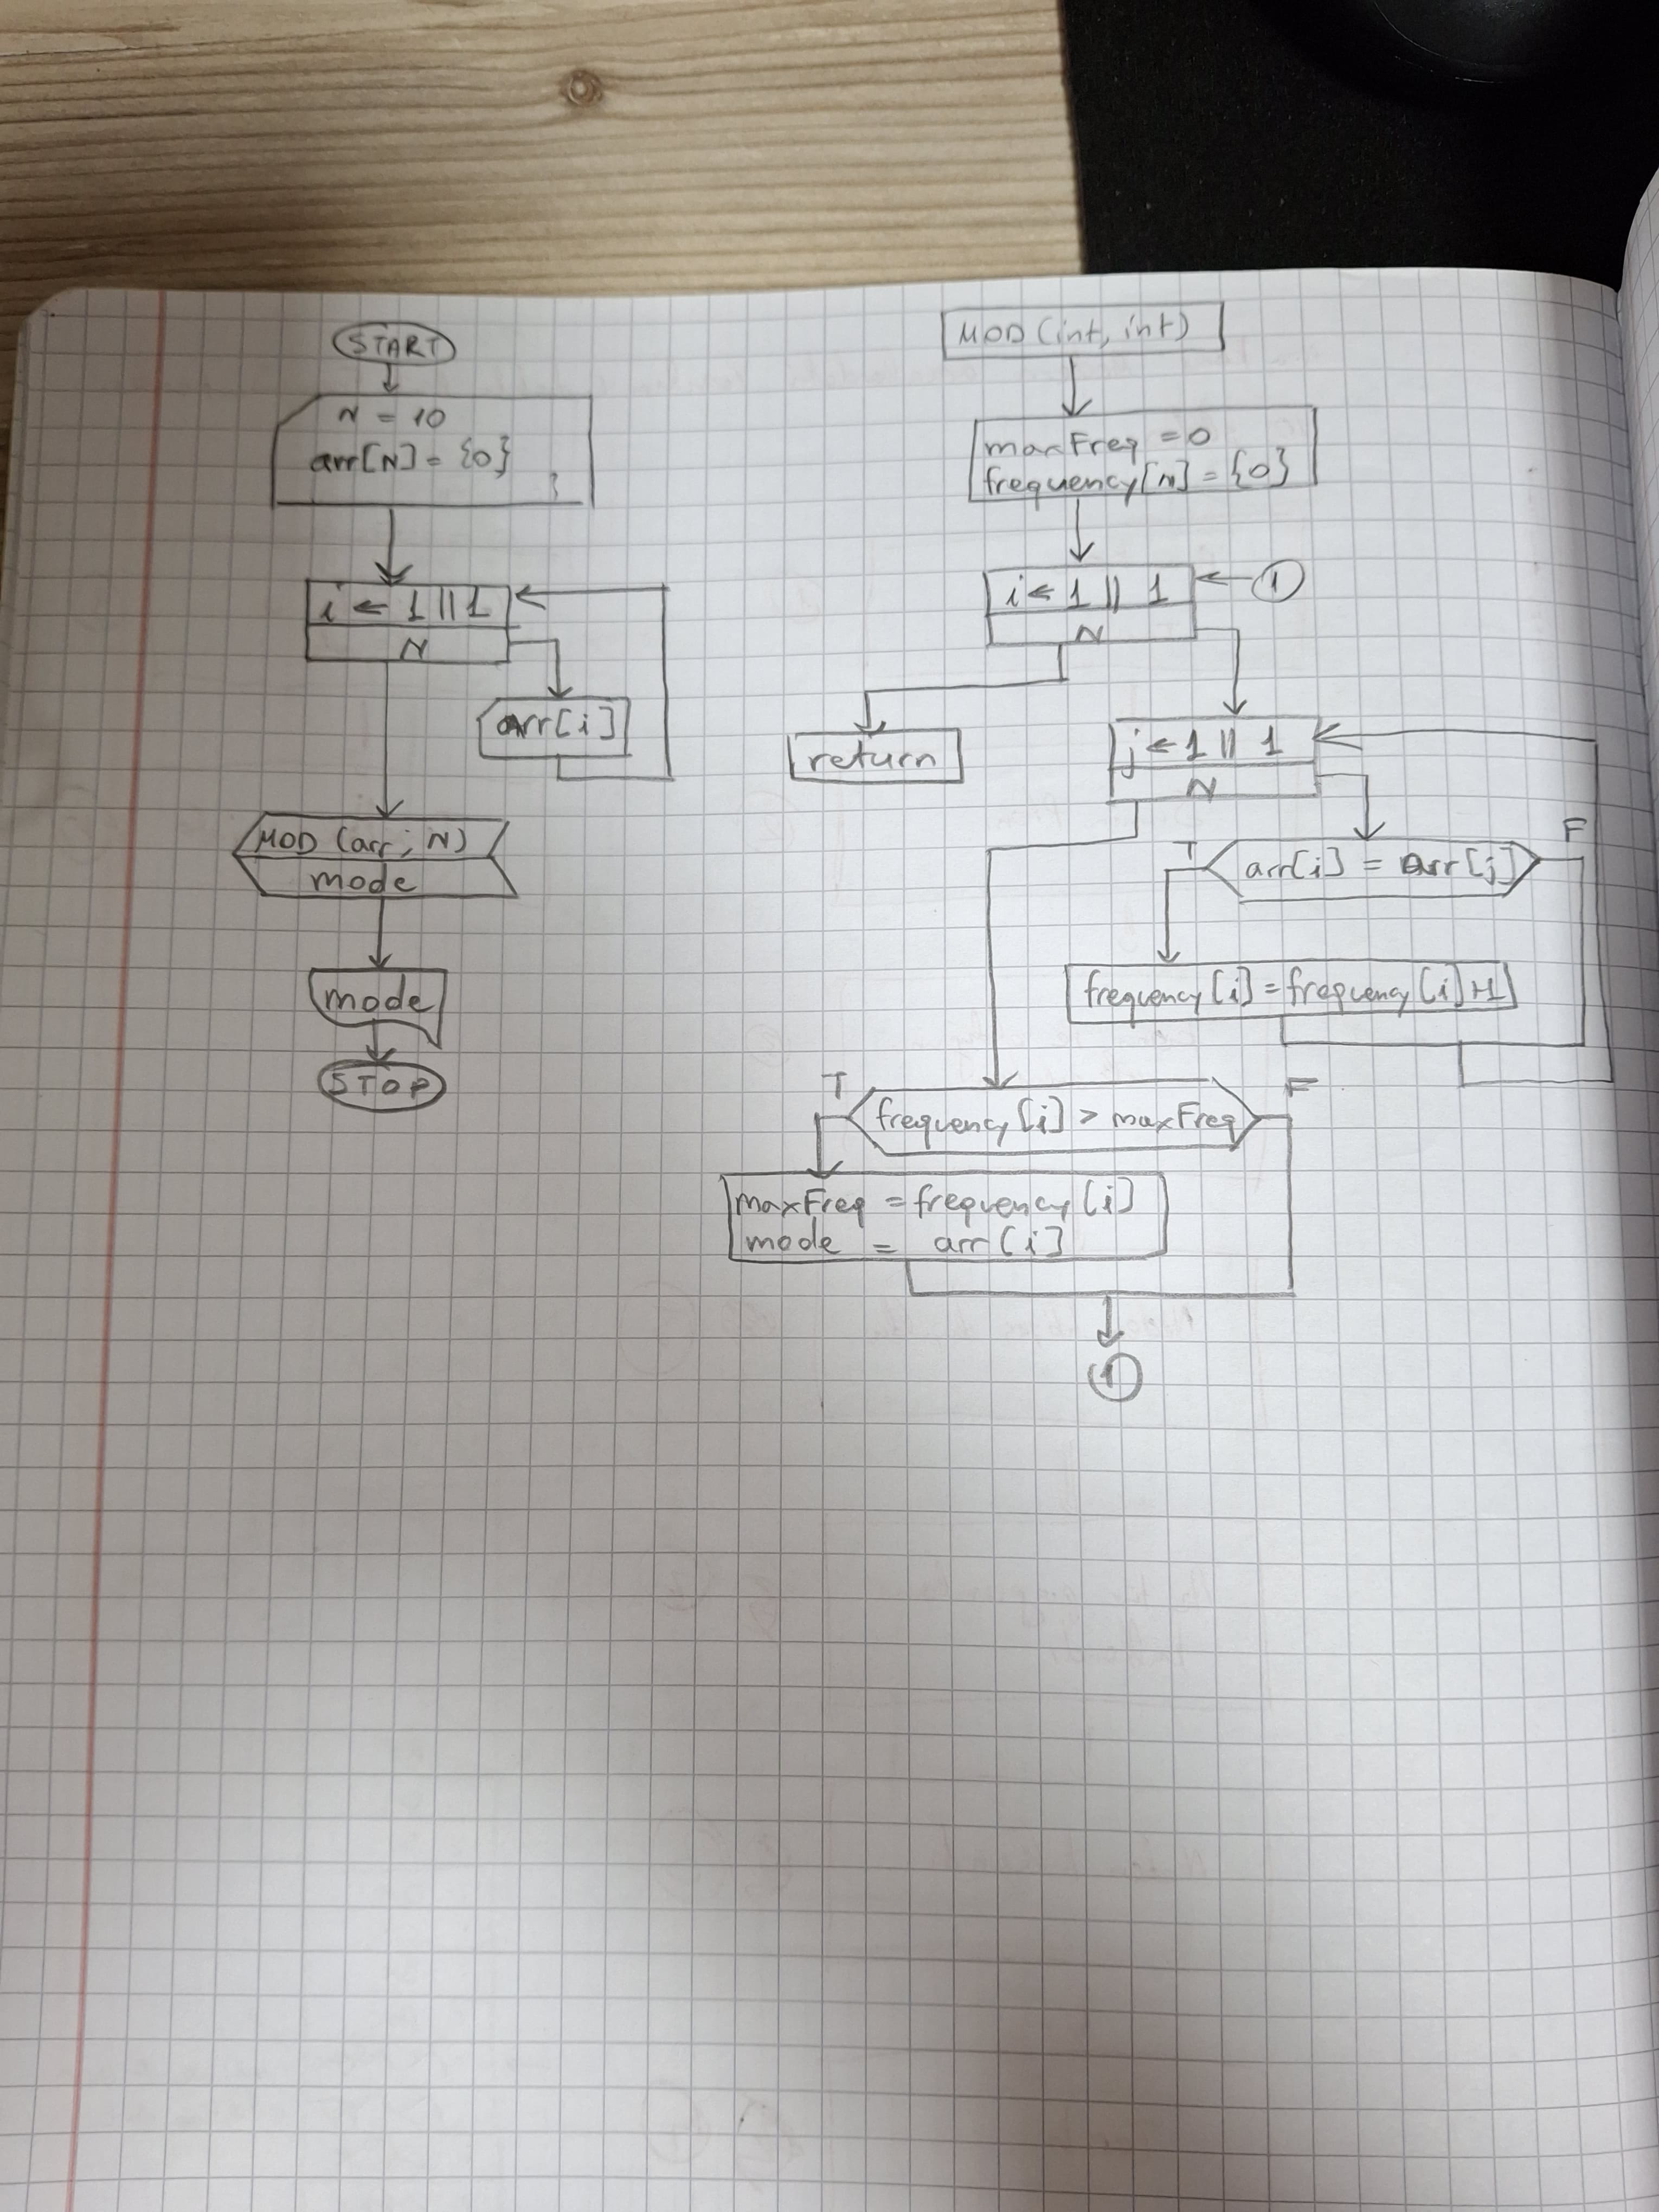 START
N = 10
arr[N] = {0}
i ← 1 || 1
N
arr[i]
MOD (arr; N)
mode
mode
STOP
MOD (int, int)
maxFreq = 0
frequency[N] = {0}
i ← 1 || 1
1
N
return
j ← 1 || 1
N
T
arr[i] = arr[j]
F
frequency[i] = frequency[i]+1
T
frequency[i] > maxFreq
F
maxFreq = frequency[i]
mode = arr[i]
1